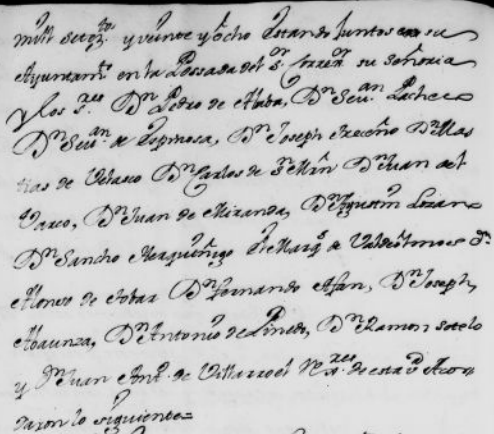 mill setez.tos y veinte y ocho estando Juntos en su
Ayuntam.to en la Possada del s.or Correx.or su señoria
y los s.res D.n Pedro de Alaba, D.n Seu.an Pacheco
D.n Seu.an de Espinosa, D.n Joseph Treceño D.n Mas
tias de Velasco D.n Carlos de S.n Mrn D.n Juan del
Varco, D.n Juan de Miranda, D.n Agustin Lozano
D.n Sancho el Marq.s de Valde D.n
Alonso de tobar D.n fernando Afan, D.n Joseph
Abaunza, D.n Antonio de Pinedo, D.n Ramon sotelo
y D.n Juan Ant.o de Villarroel Rex.res de esta v.d Acor
daron lo siguiente=